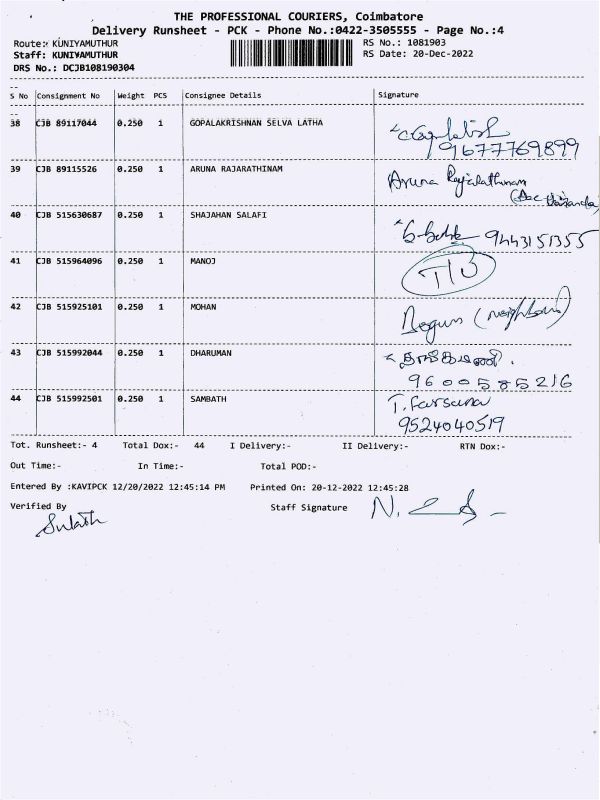 THE PROFESSIONAL COURIERS, Coimbatore
Delivery Runsheet - PCK - Phone No.:0422-3505555 - Page No.:4
Route:- KUNIYAMUTHUR RS No.: 1081903
Staff: KUNIYAMUTHUR RS Date: 20-Dec-2022
DRS No.: DCJB108190304
S No Consignment No Weight PCS Consignee Details Signature
38 CJB 89117044 0.250 1 GOPALAKRISHNAN SELVA LATHA
9677769899
39 CJB 89115526 0.250 1 ARUNA RAJARATHINAM Aruna Rajalathinam
40 CJB 515630687 0.250 1 SHAJAHAN SALAFI
9443151355
41 CJB 515964096 0.250 1 MANOJ
42 CJB 515925101 0.250 1 MOHAN Begum (neighbour)
43 CJB 515992044 0.250 1 DHARUMAN
9600585216
44 CJB 515992501 0.250 1 SAMBATH T. Farsana
9524040519
Tot. Runsheet:- 4 Total Dox:- 44 I Delivery:- II Delivery:- RTN Dox:-
Out Time:- In Time:- Total POD:-
Entered By :KAVIPCK 12/20/2022 12:45:14 PM Printed On: 20-12-2022 12:45:28
Verified By Staff Signature N.